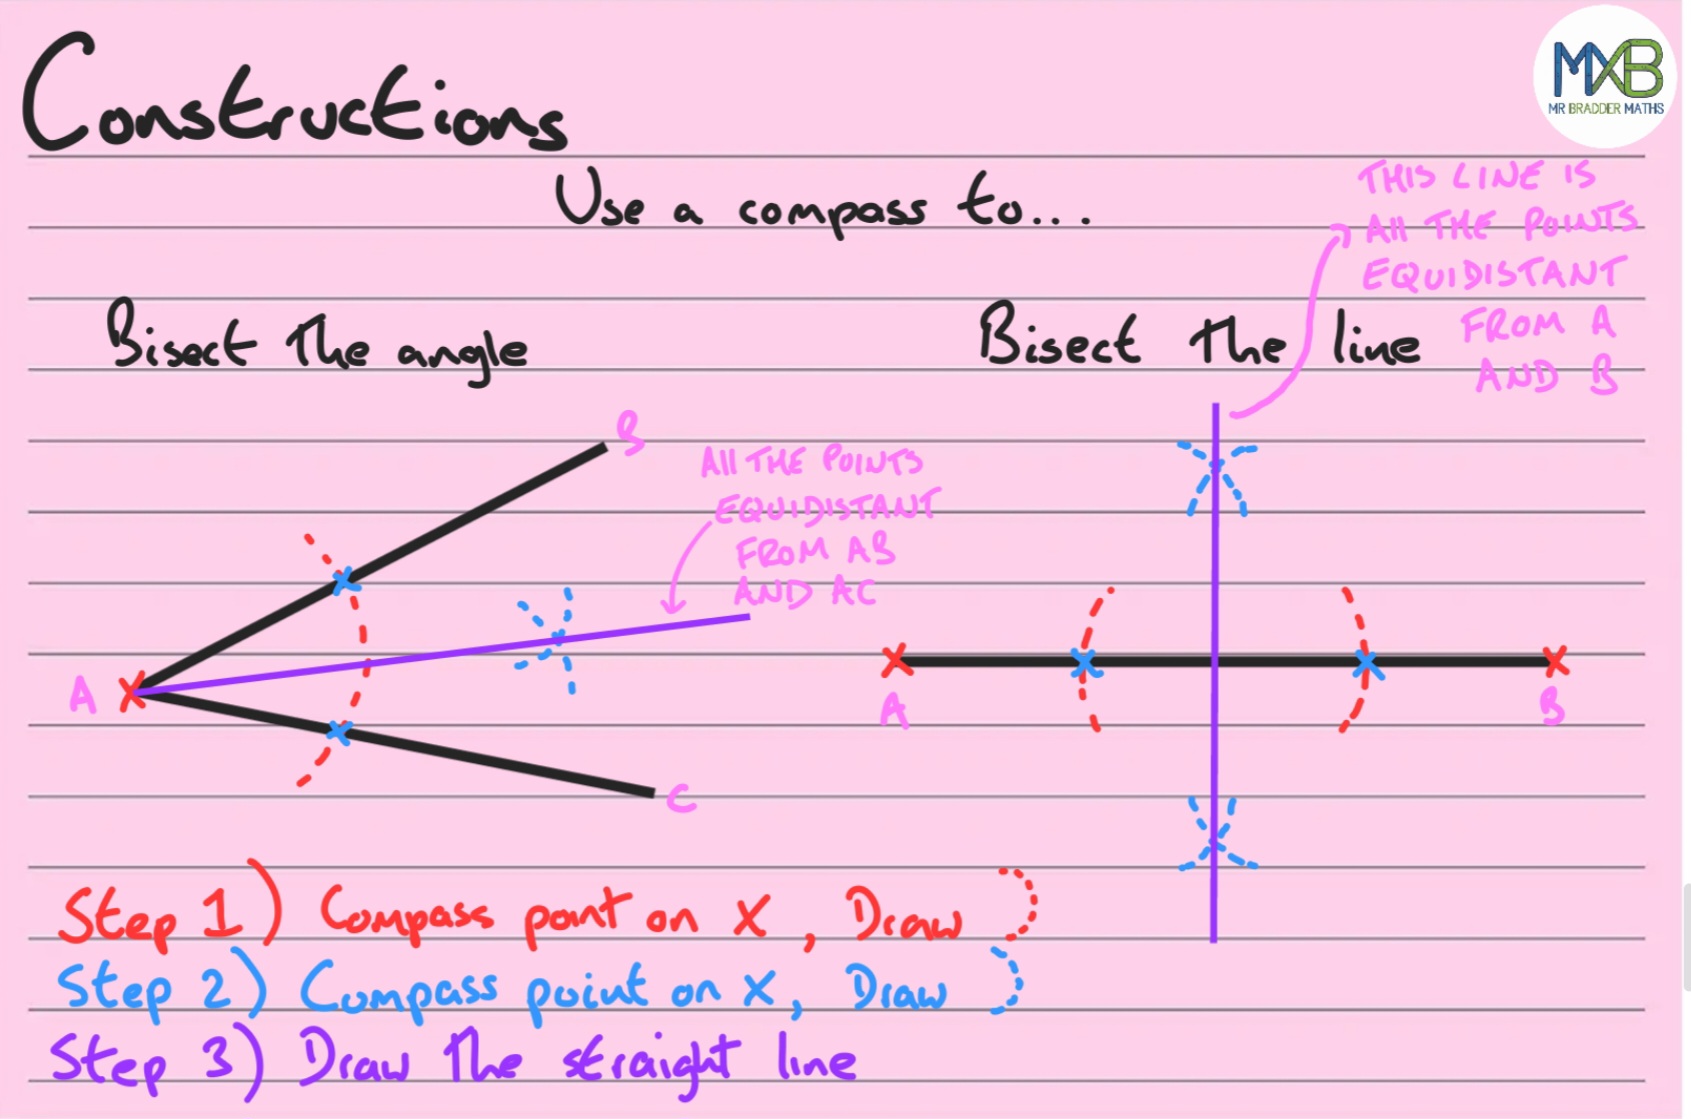 Constructions
MXB
MR BRADDER MATHS
Use a compass to...
THIS LINE IS
All THE POINTS
EQUIDISTANT
FROM A
AND B
Bisect the angle
Bisect the line
B
All THE POINTS
EQUIDISTANT
FROM AB
AND AC
A
C
A
B
Step 1) Compass point on X, Draw
Step 2) Compass point on X, Draw
Step 3) Draw the straight line